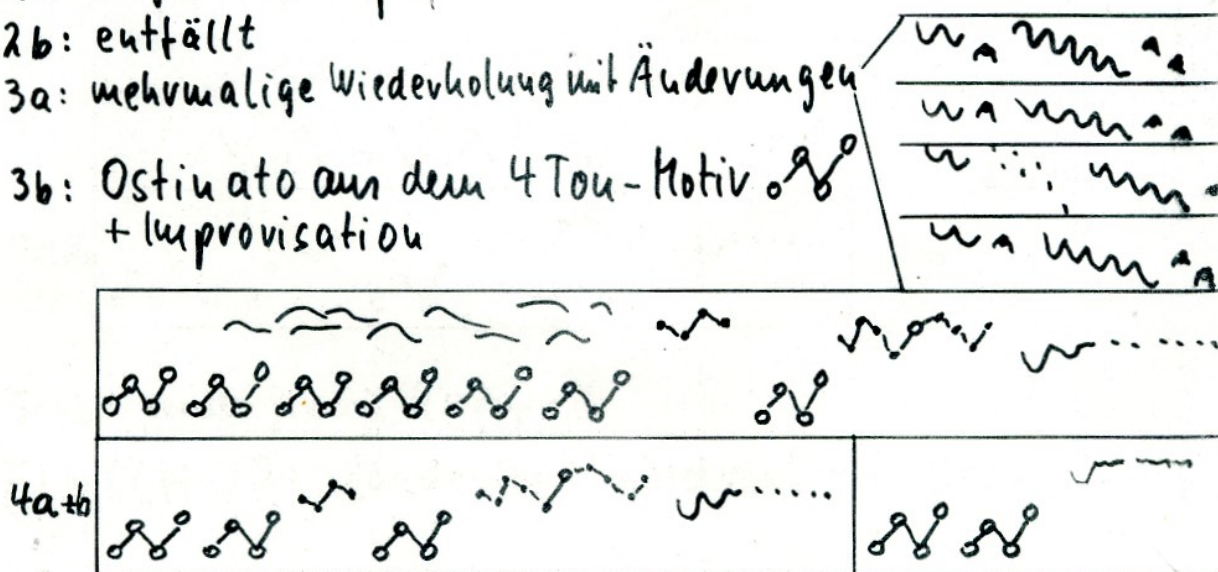 2b: entfällt
3a: mehrmalige Wiederholung mit Änderungen
3b: Ostinato aus dem 4 Ton-Motiv
+ Improvisation
4a+b